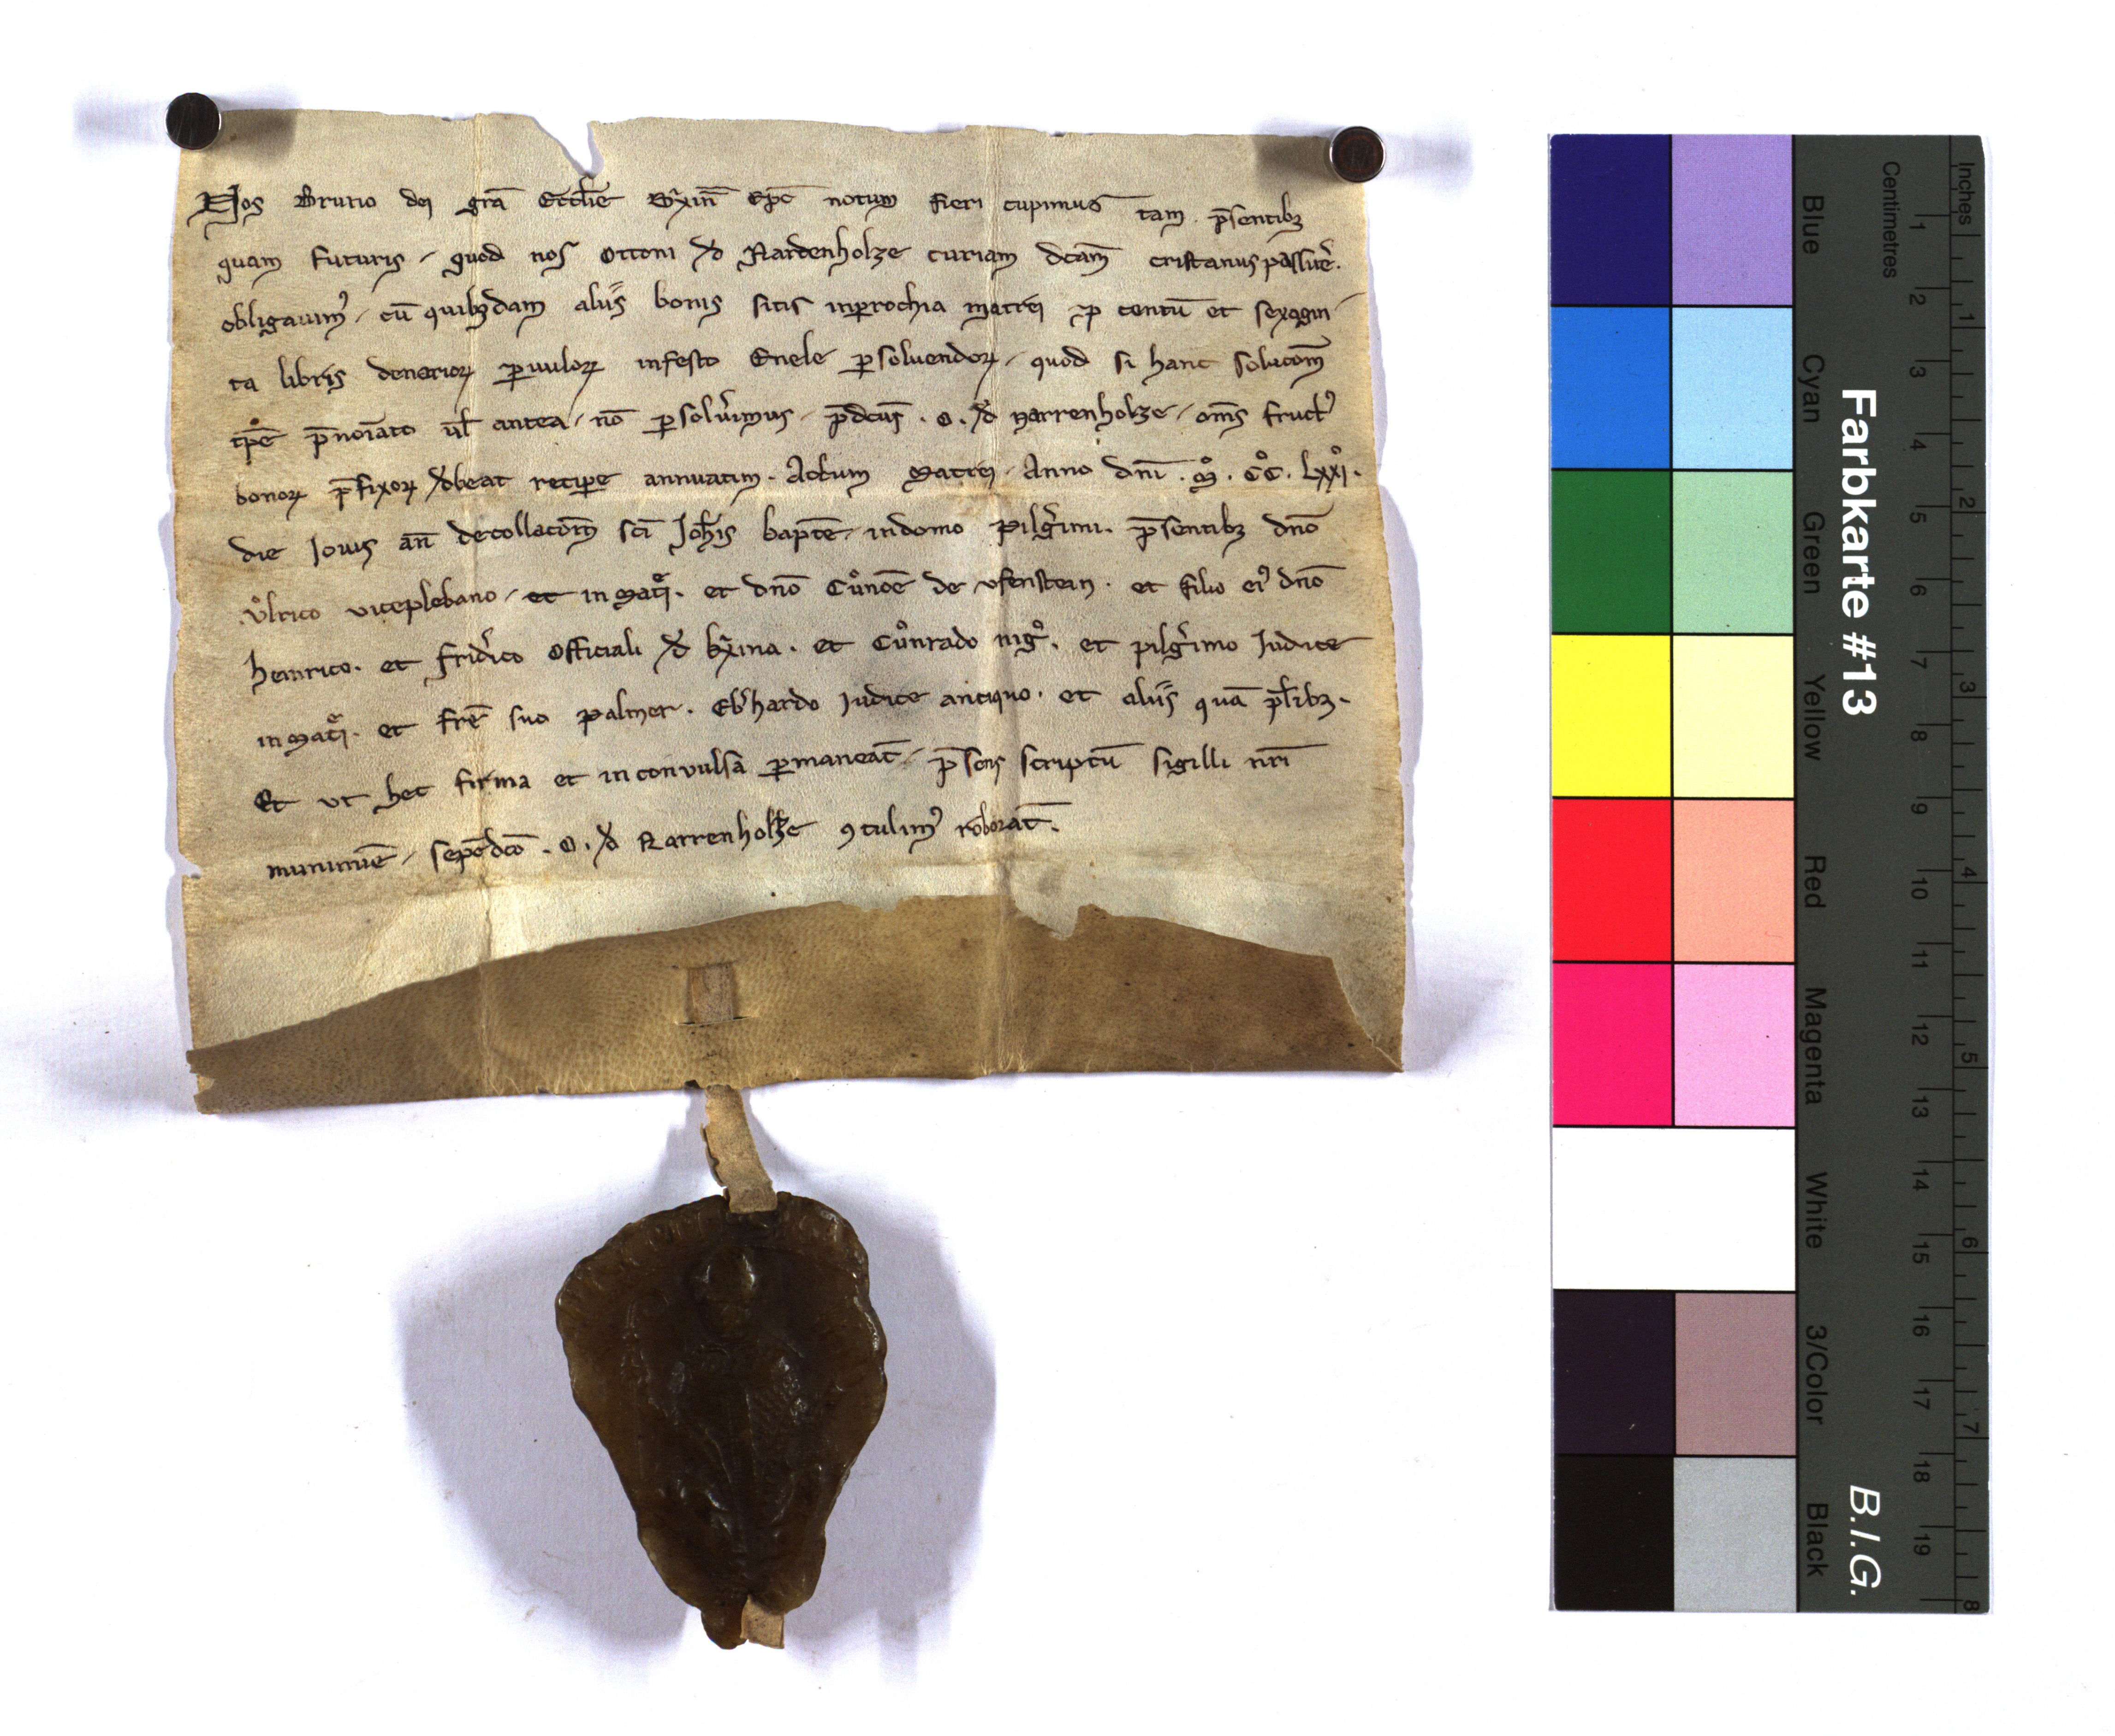 Nos Bruno dei gr̄a Eccl̄ie Brixin̄ Ep̄c notum fieri cupimus tam p̄sentibꝫ
quam futuris / quod nos Ottoni de Nardenholze curiam dc̄am cristanus passuer̄.
obligauimꝰ / cū quibꝫdam aliis bonis sitis in ꝑrochia matrei ꝓ centū et sexagin
ta libris denarioꝝ ꝑuuloꝝ in festo Enele ꝑsoluendoꝝ / quod si hanc solucōm
tꝑe p̄noīato ul̄ antea / nō ꝑsoluimus / p̄dcūs . O . de Narrenholze / om̄s fructꝰ
bonoꝝ p̄fixoꝝ debeat reciꝑe annuatim . Actum Matrei . Anno dn̄i . M̊ . CC̊ . Lxx̊i .
die Iouis an̄ decollacōm sc̄i Joh̄is bapt̄e / in domo pilgͥmi . p̄sentibꝫ dn̄o
Vͦlrico viceplebano / et in Mat̄i . et dn̄o Cuͦnōe de vfenstein . et filio eiꝰ dn̄o
heinrico . et frid̓ico Officiali de bͥxina . et Cuͦnrado nigͦ . et pilgͥmo Iudice
in Mat̄i . et fr̄e suo palmer . Eb̓hardo Iudice antiquo . et aliis quā pl̄ibꝫ .
Et vt hec firma et inconuulsā ꝑmaneāt / p̄sens scriptū sigilli nr̄i
munimīe / sepedc̄o . O . de Narrenholze ꝯtulimꝰ roborāt .
Farbkarte #13
B.I.G.
Blue
Cyan
Green
Yellow
Red
Magenta
White
3/Color
Black
Centimetres
1 2 3 4 5 6 7 8 9 10 11 12 13 14 15 16 17 18 19
Inches
1 2 3 4 5 6 7 8